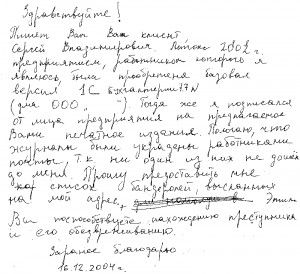 Здравствуйте!
Пишет Вам Ваш клиент
Сергей Владимирович. Летом 2002 г.
предприятием, работником которого я
являюсь, была приобретена базовая
версия 1С Бухгалтерии 7.7
(для ООО „ “). Тогда же я подписался
от лица предприятия на предлагаемое
Вами печатное издание. Полагаю, что
журналы были украдены работниками
почты, т.к. ни один из них не дошёл
до меня. Прошу предоставить мне
список бандеролей, высланных
на мой адрес. Этим
Вы поспособствуете нахождению преступника
и его обезвреживанию.
Заранее благодарю
16.12.2004 г.